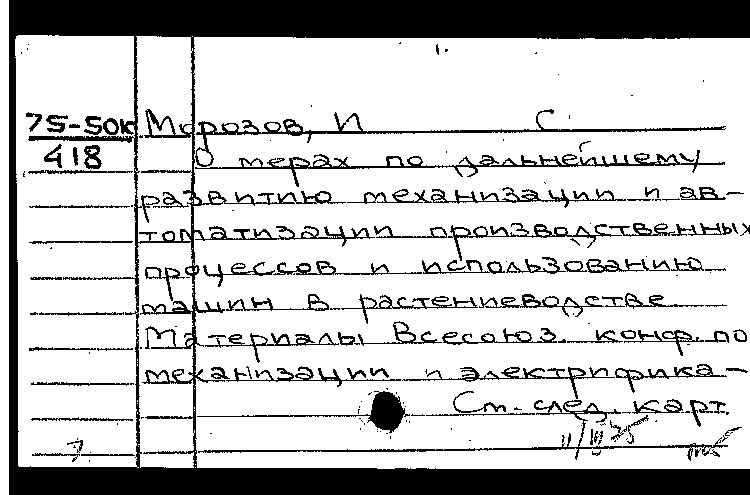 1.
75-50к Морозов, И С.
418 О мерах по дальнейшему
развитию механизации и ав-
томатизации производственных
процессов и использованию
машин в растениеводстве.
Материалы Всесоюз. конф. по
механизации и электрифика-
См. след. карт.
11/III 75